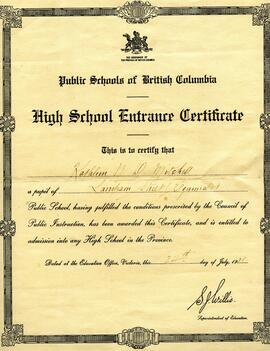 THE GOVERNMENT OF
THE PROVINCE OF BRITISH COLUMBIA
Public Schools of British Columbia
High School Entrance Certificate
This is to certify that
Mitchell
a pupil of
Public School, having fulfilled the conditions prescribed by the Council
of Public Instruction, has been awarded this Certificate, and is entitled to
admission into any High School in the Province.
Dated at the Education Office, Victoria, this 24th day of July, 19
S.J. Willis
Superintendent of Education.